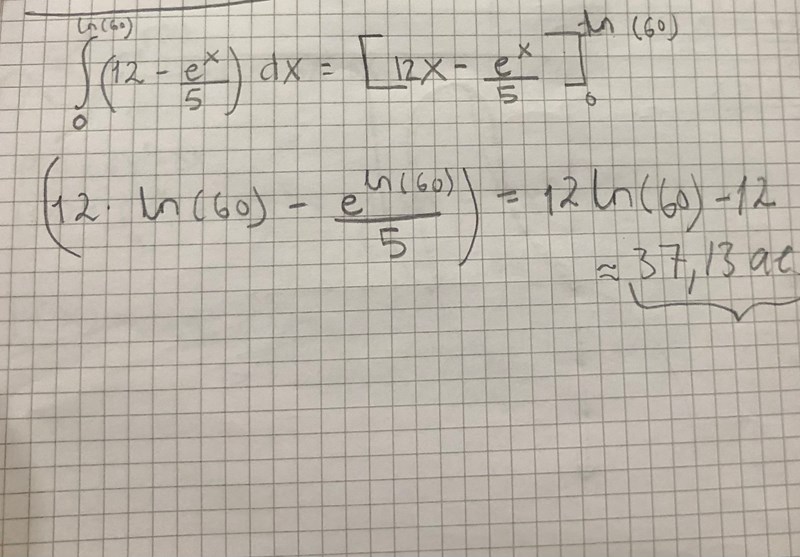 ∫₀^ln(60) (12 - e^x/5) dx = [12x - e^x/5]₀^ln(60)
(12 · ln(60) - e^ln(60)/5) = 12 ln(60) - 12
≈ 37,13 ae